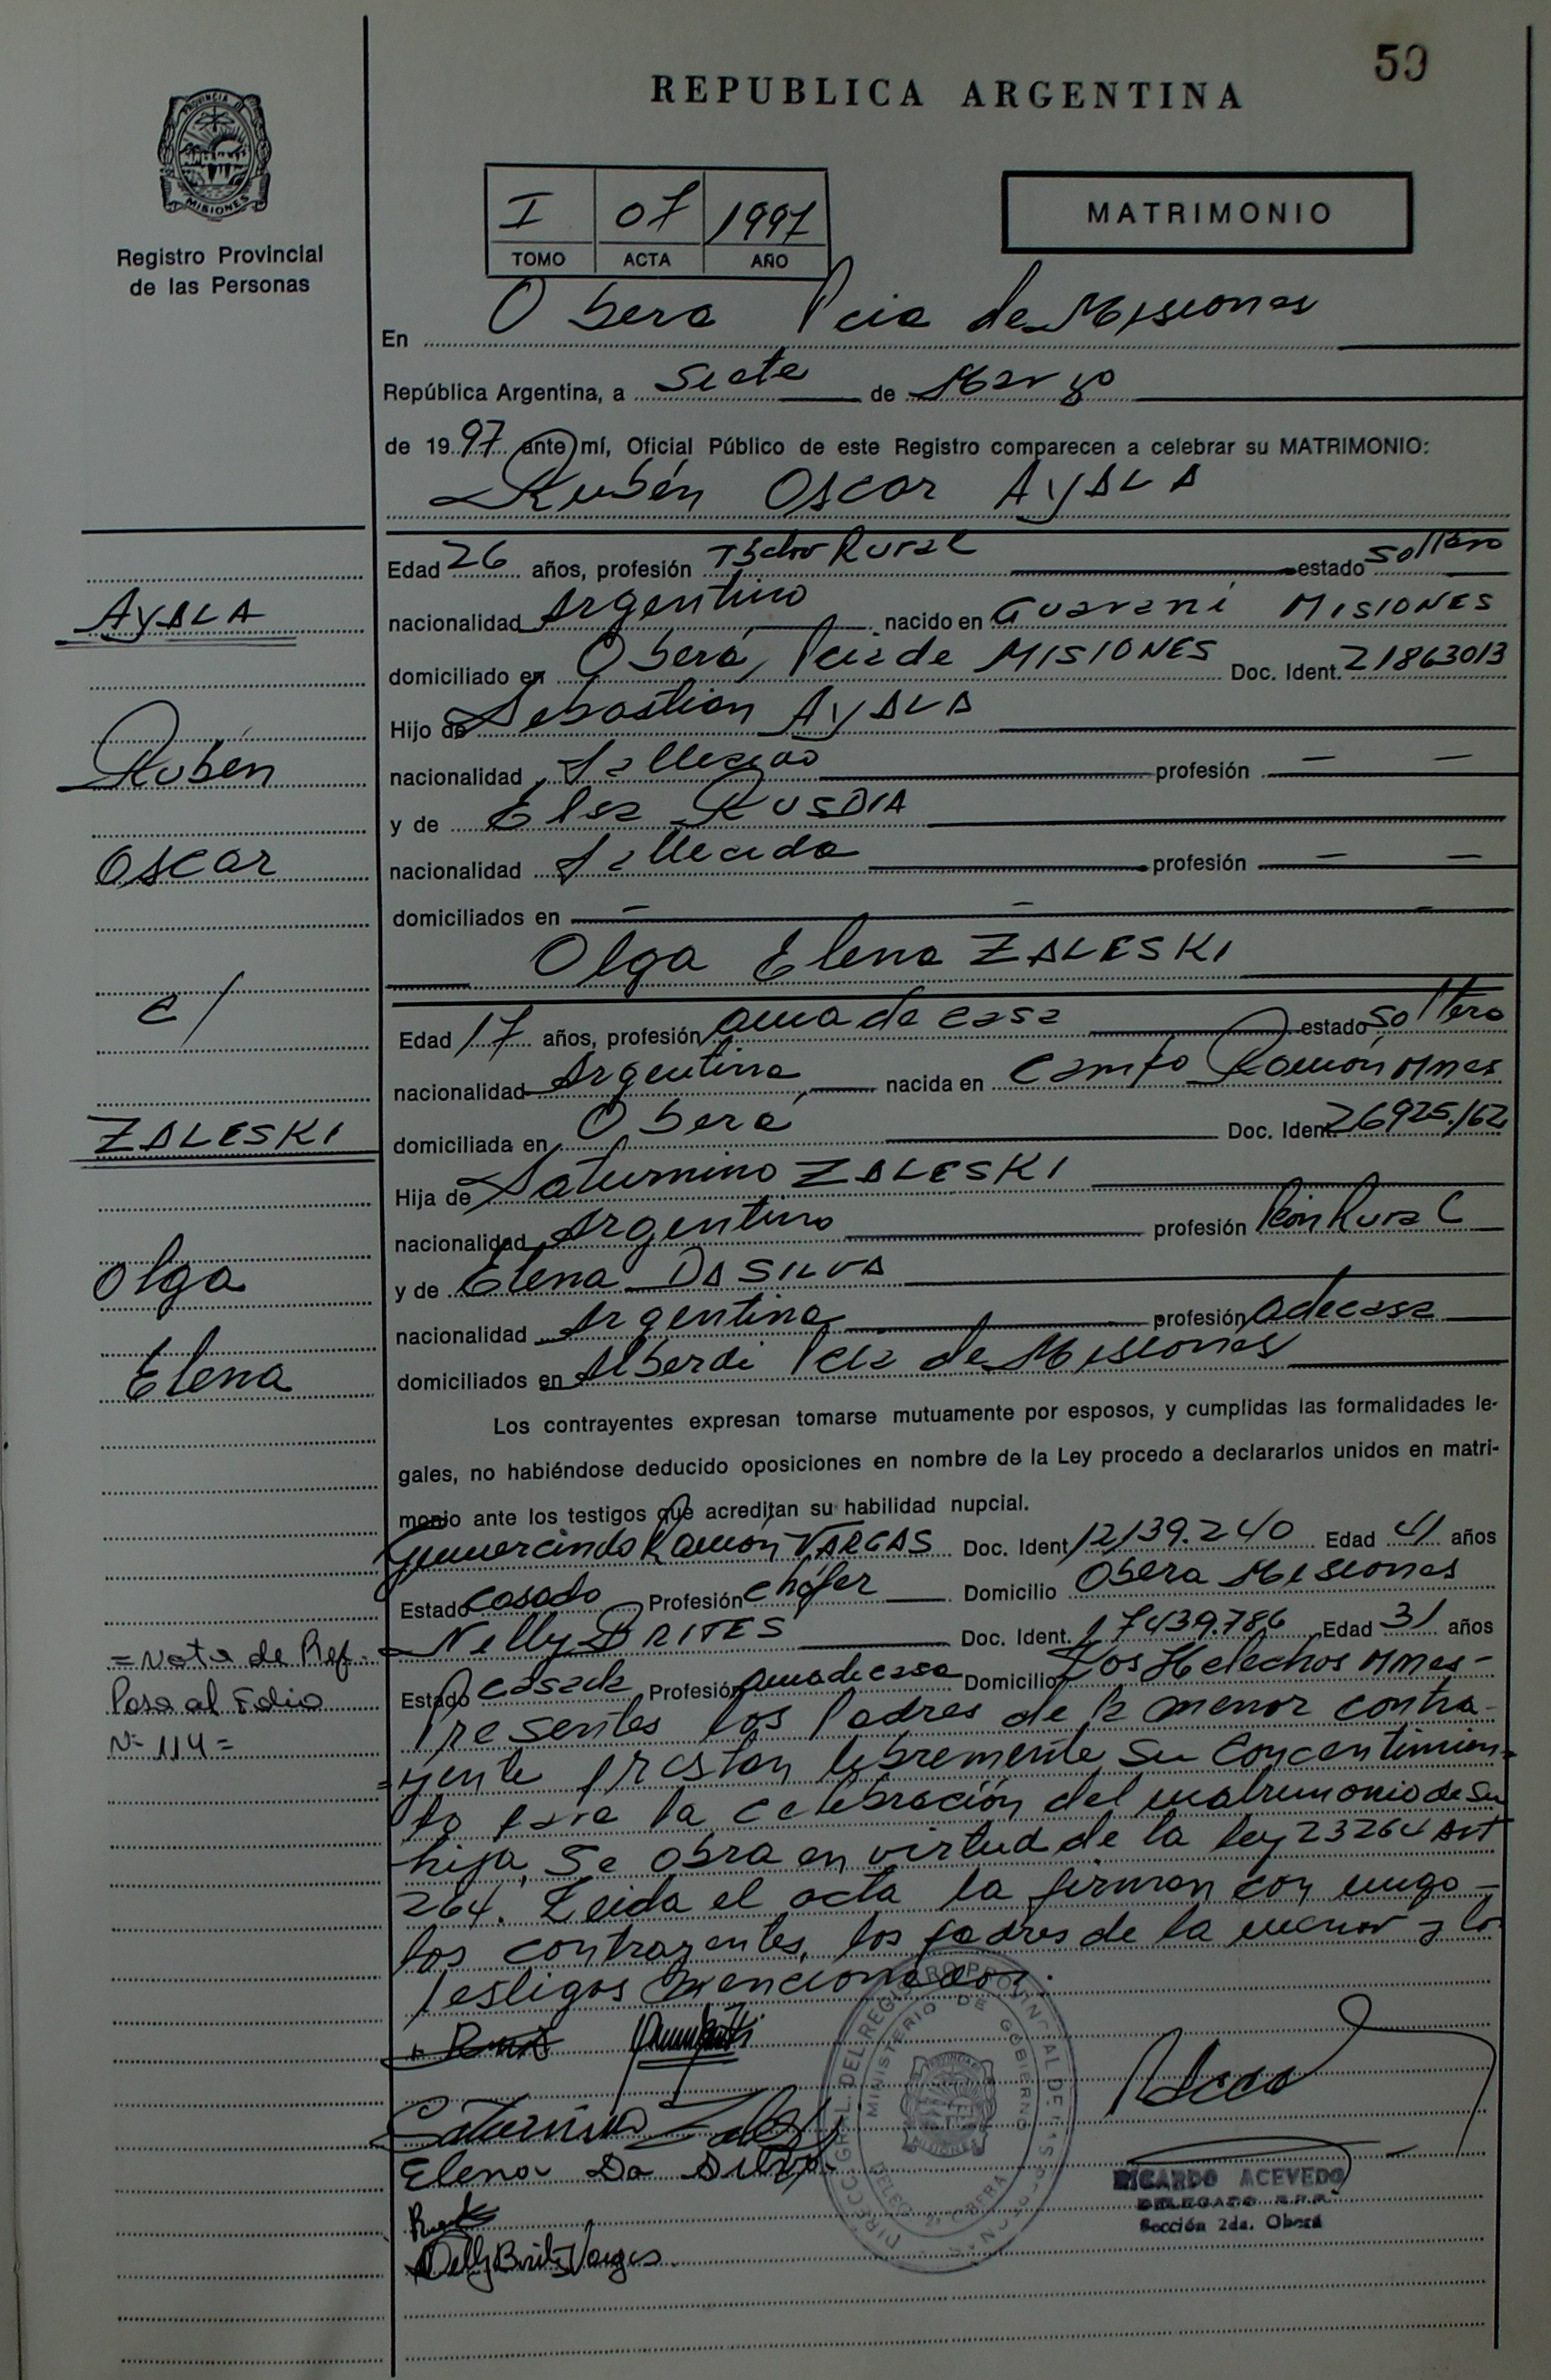 50
REPUBLICA ARGENTINA
PROVINCIA DE
MISIONES
Registro Provincial
de las Personas
I 07 1997
TOMO ACTA AÑO
MATRIMONIO
En Obera Pcia de Misiones
República Argentina, a Siete de Marzo
de 1997 ante mí, Oficial Público de este Registro comparecen a celebrar su MATRIMONIO:
Rubén Oscar AYALA
Edad 26 años, profesión Tbdor Rural estado soltero
nacionalidad Argentino nacido en Guarani MISIONES
domiciliado en Oberá, Pcia de MISIONES Doc. Ident. 21863013
Hijo de Sebastian AYALA
nacionalidad fallecido profesión — —
y de Elsa
nacionalidad fallecida profesión — —
domiciliados en — — —
Olga Elena ZALESKI
Edad 17 años, profesión ama de casa estado soltera
nacionalidad Argentina nacida en Campo Ramón Mnes
domiciliada en Oberá Doc. Ident. 26925.162
Hija de Saturnino ZALESKI
nacionalidad Argentino profesión Peón Rural
y de Elena DA SILVA
nacionalidad Argentina profesión a de casa
domiciliados en Alberdi Pcia de Misiones
Los contrayentes expresan tomarse mutuamente por esposos, y cumplidas las formalidades le-
gales, no habiéndose deducido oposiciones en nombre de la Ley procedo a declararlos unidos en matri-
monio ante los testigos que acreditan su habilidad nupcial.
Gumercindo Ramón VARGAS Doc. Ident. 12139.240 Edad 41 años
Estado casado Profesión chófer Domicilio Obera Misiones
Nelly BRITES Doc. Ident. 17439.786 Edad 31 años
Estado casada Profesión ama de casa Domicilio Los Helechos Mnes-
Presentes los Padres de la menor contra-
=yente prestan libremente su concentimien=
to para la celebración del matrimonio de su
hija. Se obra en virtud de la ley 23264 Art
264. Leida el acta la firman con migo -
los contrayentes, los padres de la menor y los
Testigos mencionados.
AYALA
Rubén
Oscar
c/
ZALESKI
Olga
Elena
=Nota de Ref.
Pasa al Folio
Nº 114=
Elena Da Silva
Nelly Brites Vargas
DIRECC. GRAL. DEL REGISTRO PROVINCIAL DE
MINISTERIO DE GOBIERNO
MISIONES
RICARDO ACEVEDO
DELEGADO R.P.P.
Sección 2da. Oberá